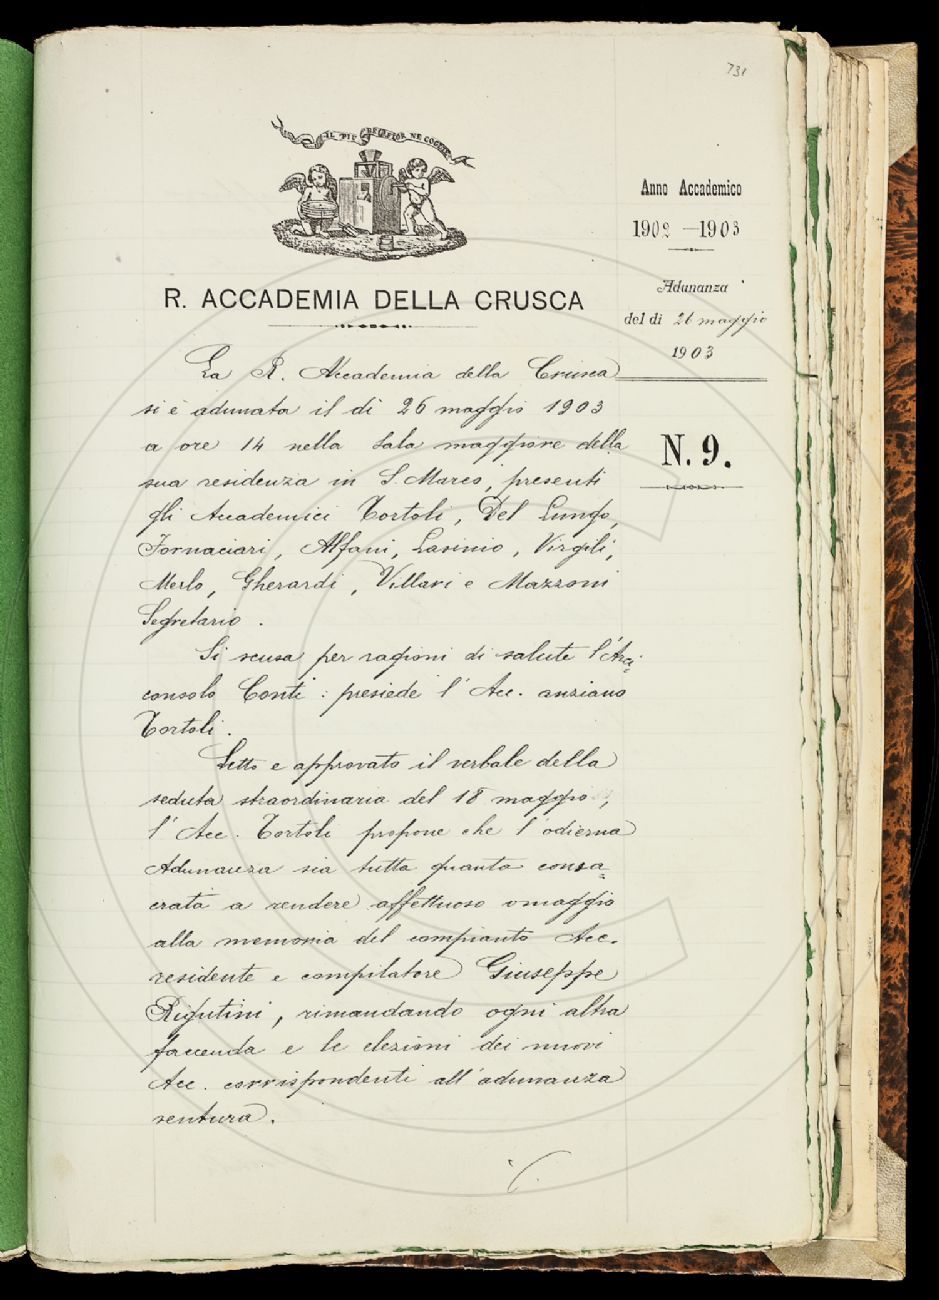 731
IL PIÙ BEL FIOR NE COGLIE
Anno Accademico
1902 - 1903
R. ACCADEMIA DELLA CRUSCA
Adunanza
del dì 26 maggio
1903
N. 9.
La R. Accademia della Crusca
si è adunata il dì 26 maggio 1903
a ore 14 nella Sala maggiore della
sua residenza in S. Marco, presenti
gli Accademici Tortoli, Del Lungo,
Fornaciari, Alfani, Lasinio, Virgili,
Merlo, Gherardi, Villari e Mazzoni
Segretario.
Si scusa per ragioni di salute l'Arci=
consolo Conti: presiede l'Acc. anziano
Tortoli.
Letto e approvato il verbale della
seduta straordinaria del 18 maggio,
l'Acc. Tortoli propone che l'odierna
Adunanza sia tutta quanta consa=
crata a rendere affettuoso omaggio
alla memoria del compianto Acc.
residente e compilatore Giuseppe
Rigutini, rimandando ogni altra
faccenda e le elezioni dei nuovi
Acc. corrispondenti all'adunanza
ventura.